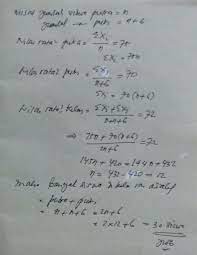 Misal jumlah siswa putra = n
jumlah siswa putri = n+6
Nilai rata² putra = Σxi / n = 75
Σxi = 75n
Nilai rata² putri = Σxj / n+6 = 70
Σxj = 70(n+6)
Nilai rata² kelas = Σxi+Σxj / n+n+6 = 72
⇒ 75n + 70(n+6) / 2n+6 = 72
145n + 420 = 144n + 432
n = 432 - 420 = 12
Maka banyak siswa kelas
= putra + putri
= n + n+6 = 2n+6
= 2x12+6 = 30 siswa